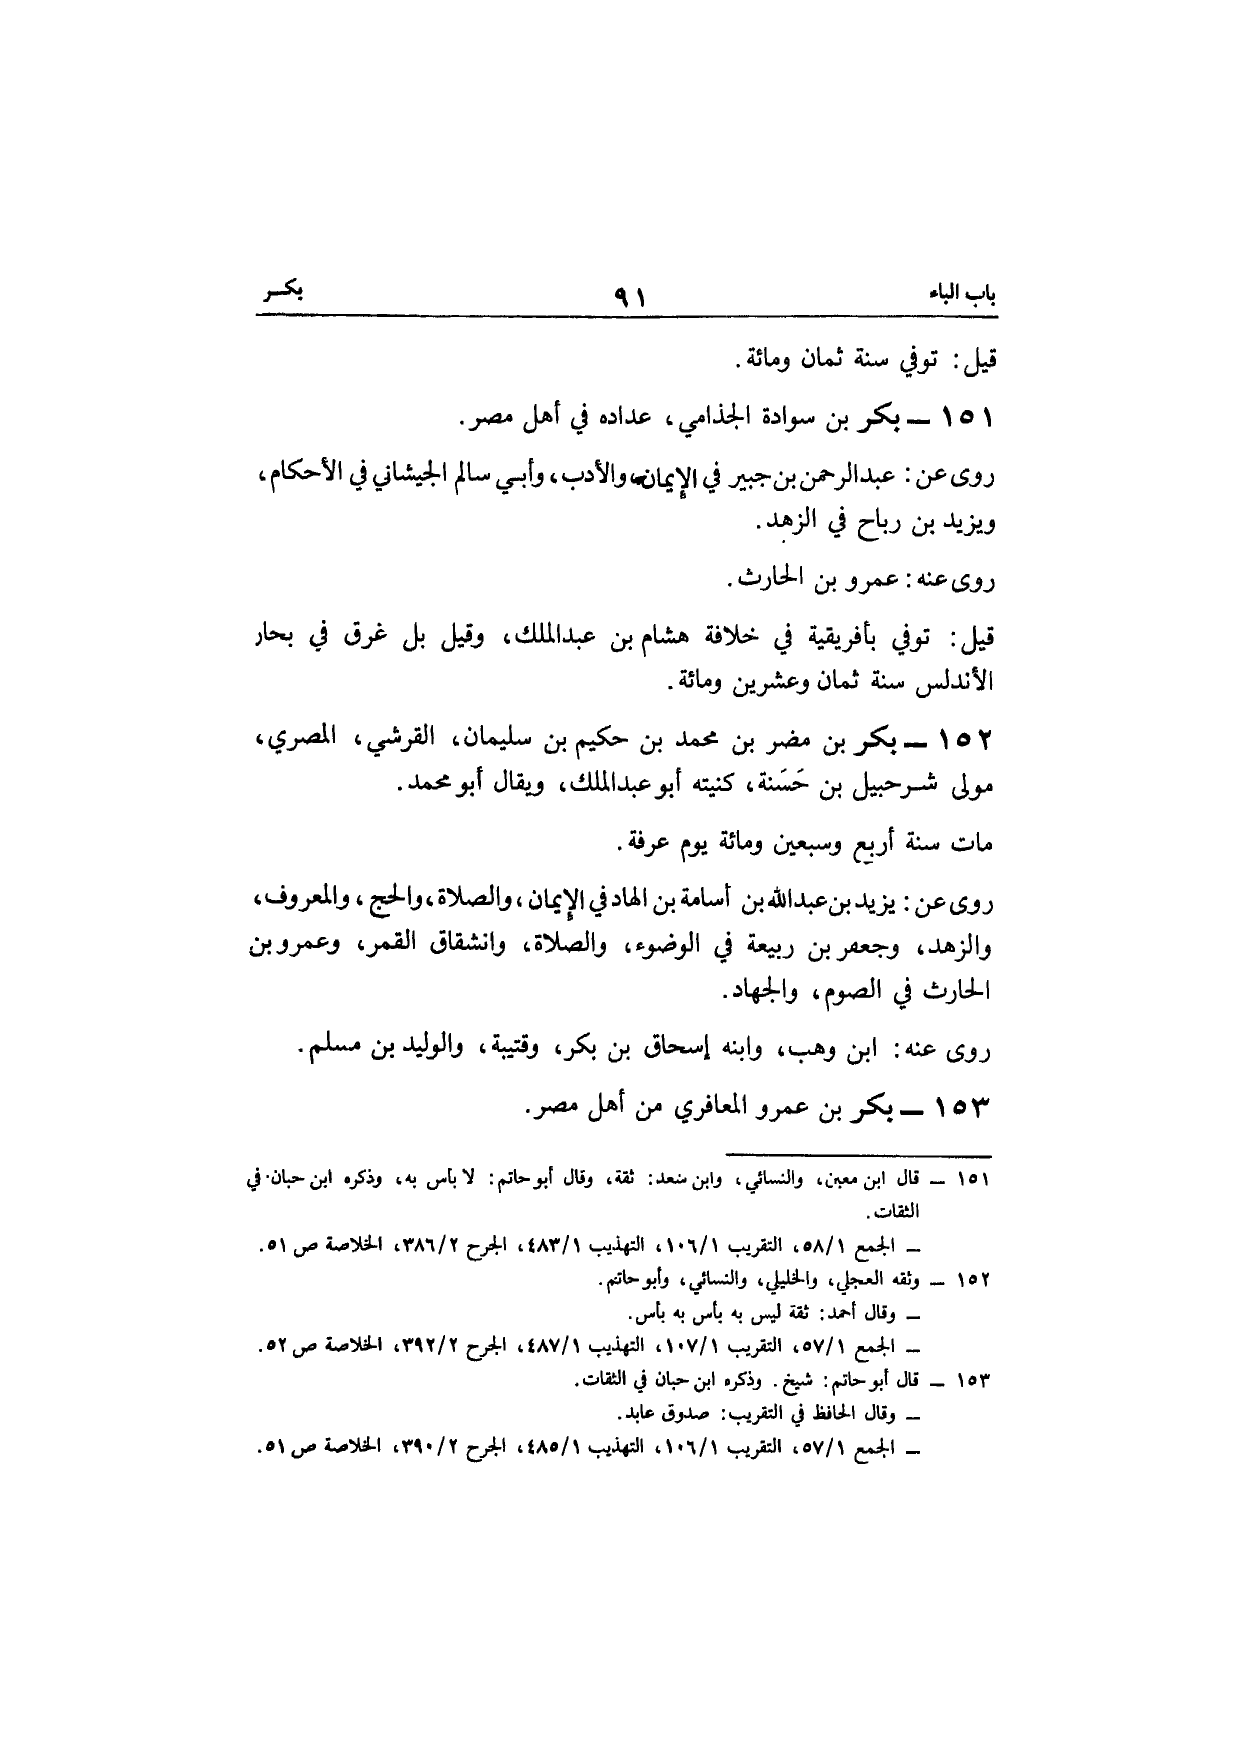 باب الباء ٩١ بكـــر
قيل: توفي سنة ثمان ومائة.
١٥١ ــ بكر بن سوادة الجذامي، عداده في أهل مصر.
روى عن: عبدالرحمن بن جبير في الإيمان، والأدب، وأبي سالم الجيشاني في الأحكام،
ويزيد بن رباح في الزهد.
روى عنه: عمرو بن الحارث.
قيل: توفي بأفريقية في خلافة هشام بن عبدالملك، وقيل بل غرق في بحار
الأندلس سنة ثمان وعشرين ومائة.
١٥٢ ــ بكر بن مضر بن محمد بن حكيم بن سليمان، القرشي، المصري،
مولى شرحبيل بن حَسَنة، كنيته أبو عبدالملك، ويقال أبو محمد.
مات سنة أربع وسبعين ومائة يوم عرفة.
روى عن: يزيد بن عبدالله بن أسامة بن الهاد في الإيمان، والصلاة، والحج، والمعروف،
والزهد، وجعفر بن ربيعة في الوضوء، والصلاة، وانشقاق القمر، وعمرو بن
الحارث في الصوم، والجهاد.
روى عنه: ابن وهب، وابنه إسحاق بن بكر، وقتيبة، والوليد بن مسلم.
١٥٣ ــ بكر بن عمرو المعافري من أهل مصر.
١٥١ ــ قال ابن معين، والنسائي، وابن سعد: ثقة، وقال أبو حاتم: لا بأس به، وذكره ابن حبان في
الثقات.
ــ الجمع ٥٨/١، التقريب ١٠٦/١، التهذيب ٤٨٣/١، الجرح ٣٨٦/٢، الخلاصة ص ٥١.
١٥٢ ــ وثقه العجلي، والخليلي، والنسائي، وأبو حاتم.
ــ وقال أحمد: ثقة ليس به بأس به بأس.
ــ الجمع ٥٧/١، التقريب ١٠٧/١، التهذيب ٤٨٧/١، الجرح ٣٩٢/٢، الخلاصة ص ٥٢.
١٥٣ ــ قال أبو حاتم: شيخ. وذكره ابن حبان في الثقات.
ــ وقال الحافظ في التقريب: صدوق عابد.
ــ الجمع ٥٧/١، التقريب ١٠٦/١، التهذيب ٤٨٥/١، الجرح ٣٩٠/٢، الخلاصة ص ٥١.